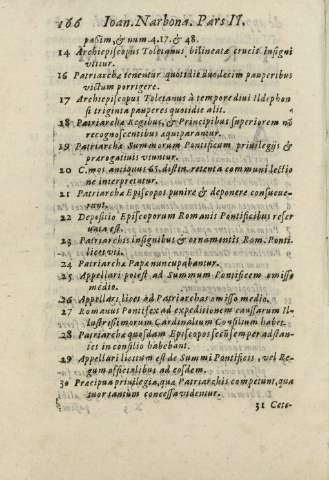 166 Ioan. Narbona. Pars II.
passim, & num. 4. 17. & 48.
14 Archiepiscopus Toletanus bilineatæ crucis insigni
vtitur.
16 Patriarchæ tenentur quotidie duodecim pauperibus
victum porrigere.
17 Archiepiscopus Toletanus à tempore diui Ildephon
si triginta pauperes quotidie alit.
18 Patriarchæ Regibus, & Principibus superiorem nō
recognoscentibus æquiparantur.
19 Patriarchæ Summorum Pontificum priuilegijs &
prærogatiuis vtuntur.
20 C. mos antiquus 65. distin. retenta communi lectio
ne interpretatur.
21 Patriarchæ Episcopos punire & deponere consueue-
rant.
22 Depositio Episcoporum Romanis Pontificibus reser
uata est.
23 Patriarchis insignibus & ornamentis Rom. Ponti-
licet vti.
24 Patriarchæ Papæ nuncupabantur.
25 Appellari potest ad Summum Pontificem omisso
medio.
26 Appellari licet ad Patriarchas omisso medio.
27 Romanus Pontifex ad expeditionem caussarum Il-
lustrissimorum Cardinalium Consilium habet.
28 Patriarchæ quosdam Episcopos secũ semper adstan-
tes in consilio habebant.
29 Appellari licitum est de Summi Pontificis, vel Re-
gum officialibus ad eosdem.
30 Præcipua priuilegia, quæ Patriarchis competunt, quæ
suor tantùm concessa videntur.
31 Cete-